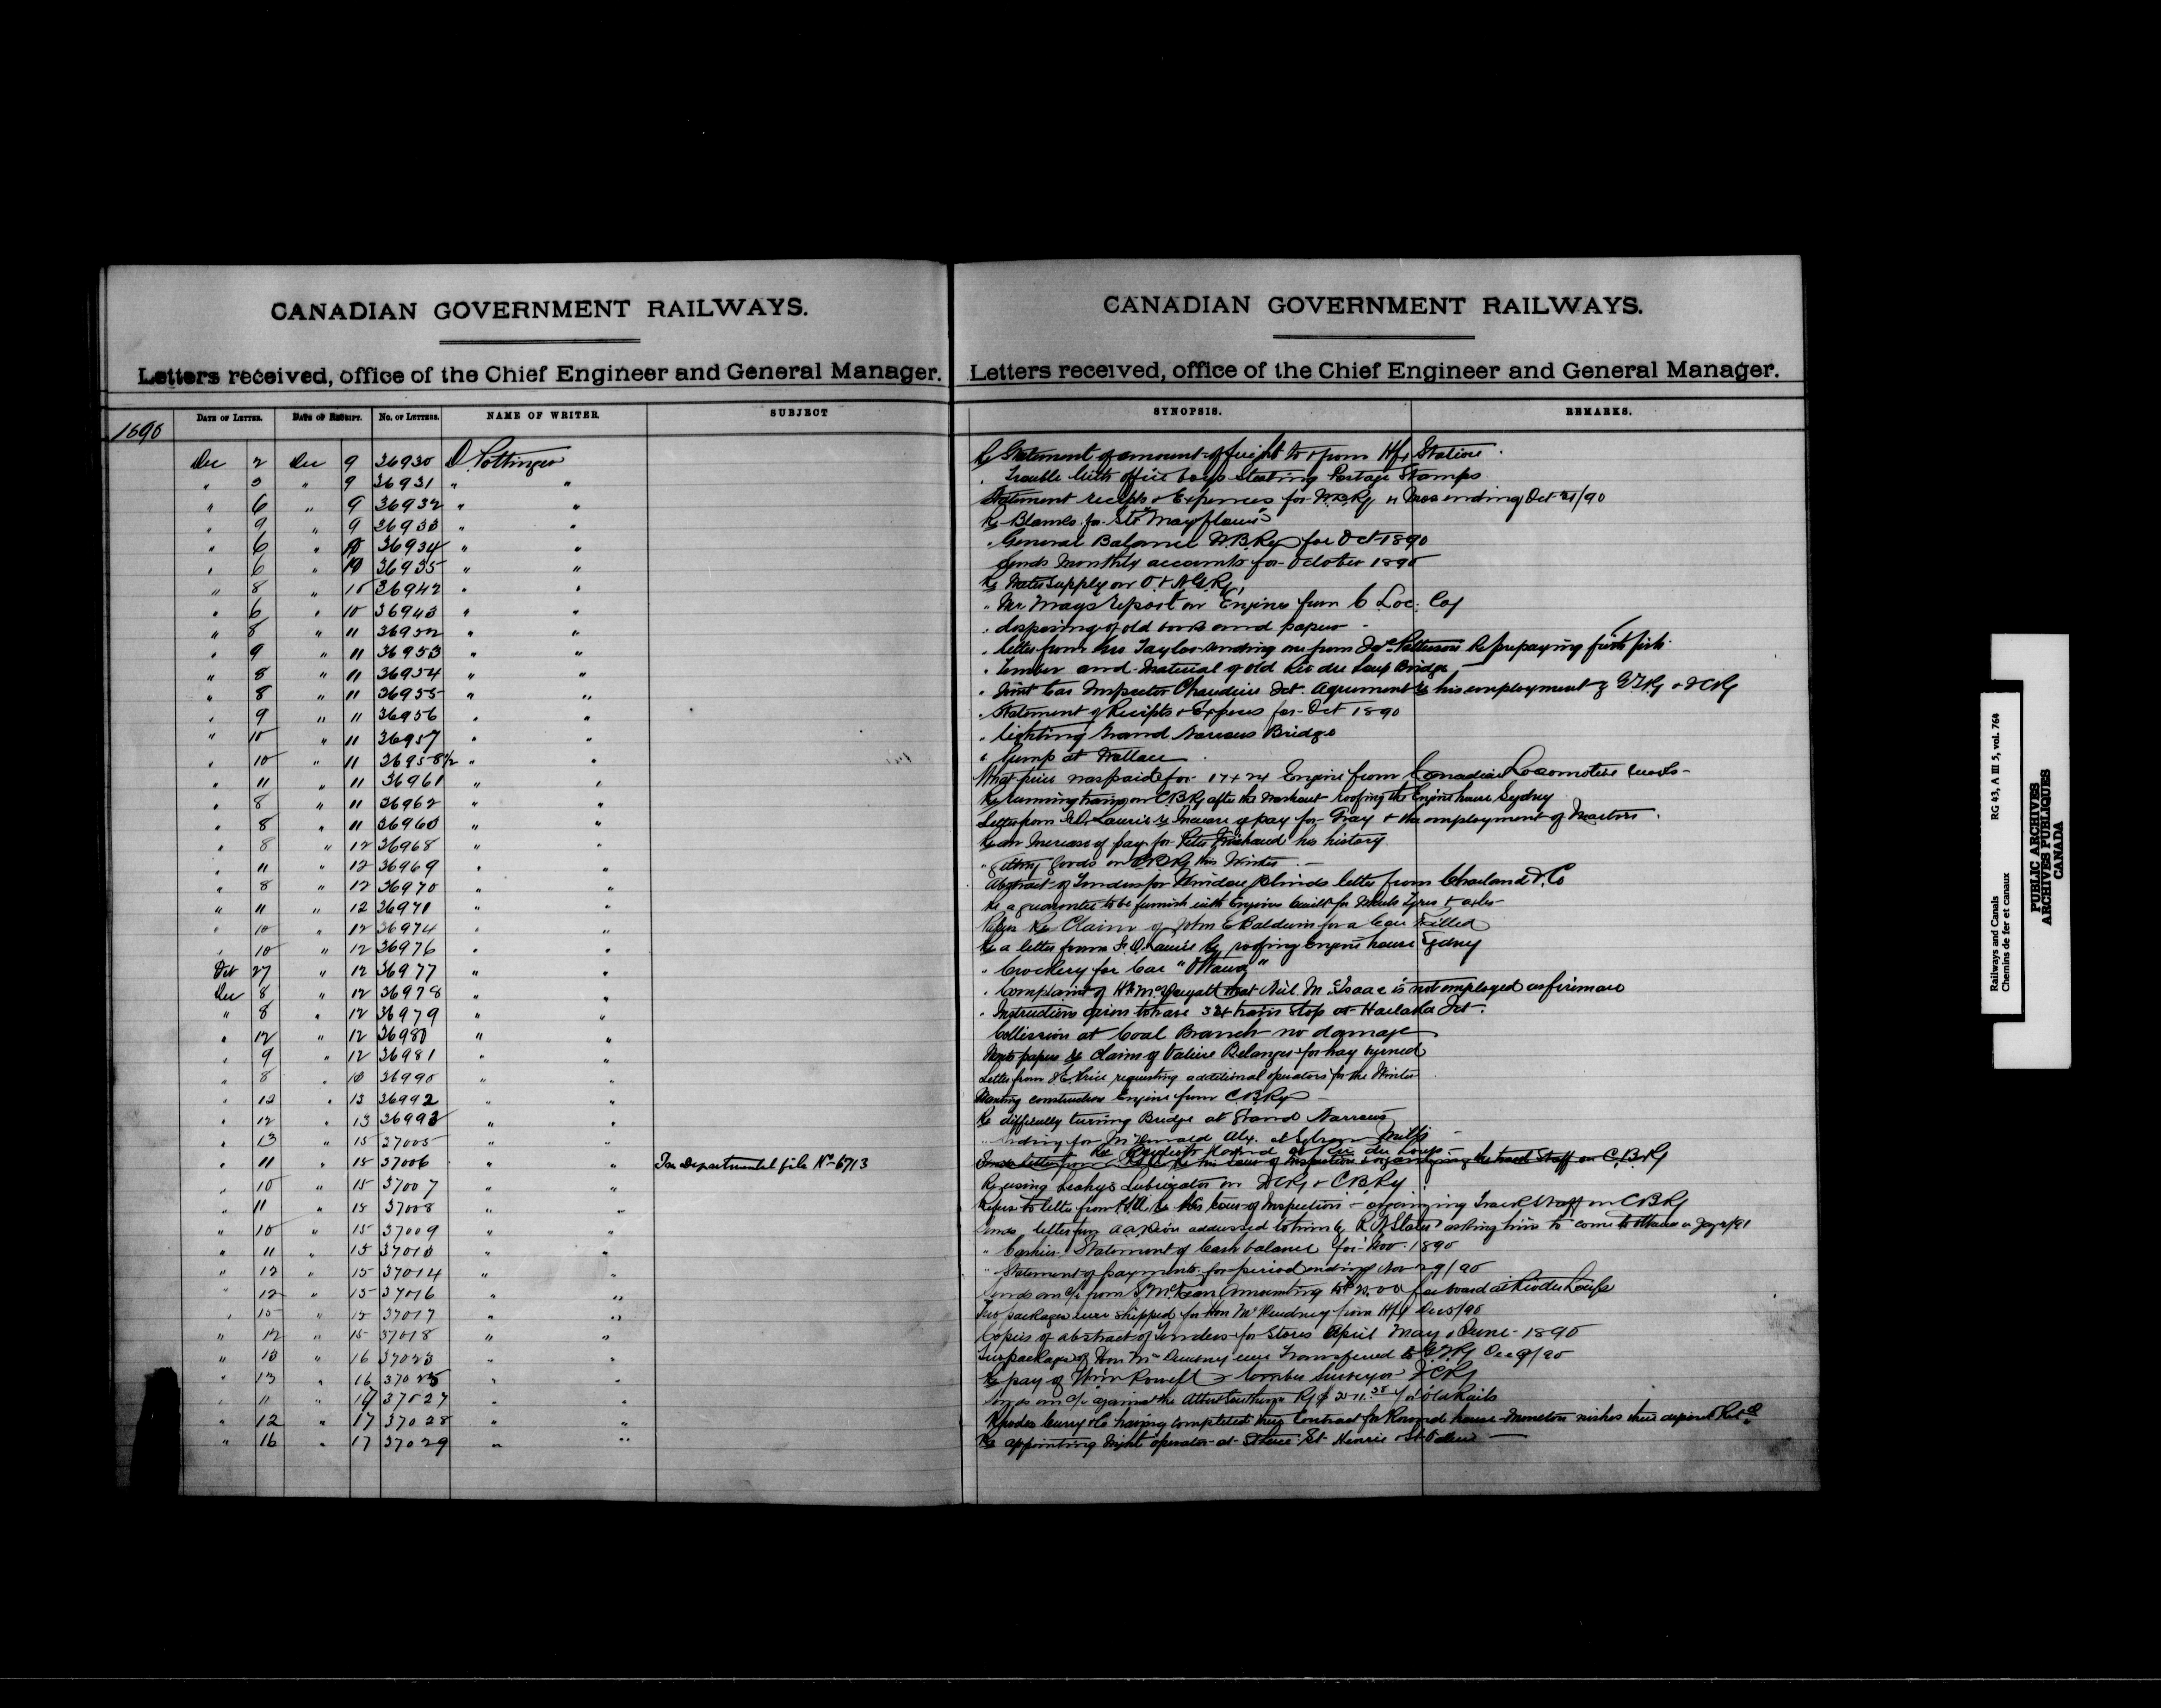 CANADIAN GOVERNMENT RAILWAYS.
Letters received, office of the Chief Engineer and General Manager.
DATE OF LETTER. DATE OF RECEIPT. No. OF LETTERS. NAME OF WRITER. SUBJECT
1890
Dec 2 Dec 9 36930 D. Pottinger
" 3 " 9 36931 " "
" 6 " 9 36932 " "
" 9 " 9 36933 " "
" 6 " 10 36934 " "
" 6 " 10 36935 " "
" 8 " 10 36942 " "
" 6 " 10 36943 " "
" 8 " 11 36952 " "
" 9 " 11 36953 " "
" 8 " 11 36954 " "
" 8 " 11 36955 " "
" 9 " 11 36956 " "
" 10 " 11 36957 " "
" 10 " 11 36958 1/2 " "
" 11 " 11 36961 " "
" 8 " 11 36962 " "
" 8 " 11 36963 " "
" 8 " 12 36968 " "
" 11 " 12 36969 " "
" 8 " 12 36970 " "
" 11 " 12 36971 " "
" 10 " 12 36974 " "
" 10 " 12 36976 " "
Oct 27 " 12 36977 " "
Dec 8 " 12 36978 " "
" 8 " 12 36979 " "
" 12 " 12 36980 " "
" 9 " 12 36981 " "
" 8 " 13 36990 " "
" 12 " 13 36992 " "
" 12 " 13 36993 " "
" 13 " 15 37005 " "
" 11 " 15 37006 " " For Departmental file No 6713
" 10 " 15 37007 " "
" 11 " 15 37008 " "
" 10 " 15 37009 " "
" 11 " 15 37013 " "
" 12 " 15 37014 " "
" 12 " 15 37016 " "
" 15 " 15 37017 " "
" 12 " 15 37018 " "
" 13 " 16 37023 " "
" 13 " 16 37025 " "
" 11 " 17 37027 " "
" 12 " 17 37028 " "
" 16 " 17 37029 " "
CANADIAN GOVERNMENT RAILWAYS.
Letters received, office of the Chief Engineer and General Manager.
SYNOPSIS. REMARKS.
Re Statement of amount of freight to & from Hfx Station.
" Trouble with office boys Stealing Postage Stamps
Statement receipts & Expences for W.B.Ry 4 Mos ending Oct 31/90
Re Blanks for Str "Mayflower"
" General Balance W.B.Ry for Oct 1890
Sends Monthly accounts for October 1890
Re Water supply on O. & N.G.Ry
" Mr Mays report on Engines from C. Loc. Coy
" disposing of old books and papers
" letter from Mr Taylor sending one from Patterson Re prepaying fresh fish
" Timber and Material of old Riv du Loup Bridge
" Joint Car Inspector Chaudiere Jct. Agreement re his employment by G.T.Ry & ICRy
" Statement of Receipts & Expences for Oct 1890
" lighting Grand Narrows Bridge
" Pump at Wallace
What price was paid for 17 x 24 Engine from Canadian Locomotive works
Re running trains on C.B.Ry after the washout roofing the Engine house Sydney
Letter from Laurie re Increase of pay for Gray & the employment of Masters
Re an Increase of pay for Peter his history
" Goods on C.B.Ry this Winter
Abstract of Tenders for Window blinds letter from Charland & Co
Re a guarantee to be furnish with Engines built for Wheels Tyres & axles
Papers Re Claim of John E Baldwin for a Cow Killed
Re a letter from Laurie Re roofing Engine house Sydney
" Crockery for Car "Ottawa"
" Complaint of that Neil McIsaac is not employed as fireman
" Instructions given to have 34 train Stop at Jct.
Collission at Coal Branch no damage
Wants papers re Claim of Valiere Belanger for hay burned
Letter from Price requesting additional operators for the Winter
Wanting construction Engine from C.B.Ry
Re difficulty turning Bridge at Grand Narrows
Siding for McDonald Alex. at Mills
Re Round at Riv du Loup
Sends letter from re his tour of Inspection & organizing the track Staff on C.B.Ry
Re using Leahys Lubricator on ICRy & C.B.Ry
Refers to letter from re his tour of Inspection & organizing Track Staff on C.B.Ry
Sends letter from addressed to him by R. N. Slater asking him to come to Ottawa
" Cashiers Statement of Cash balance for Nov. 1890
" Statement of payments for period ending Nov 29/90
Sends an a/c from McKean Amounting to for board at Riv du Loup
Two packages were shipped for Hon Mr Dewdney from Hfx Dec 5/90
Copies of abstract of Tenders for Stores April May & June 1890
Two packages of Hon Mr Dewdney were Transferred to G.T.Ry Dec 9/90
Re pay of Wm Rowell Lumber Surveyor ICRy
Sends an a/c against the Albert Southern Ry for Old Rails
Rhodes Curry & Co having completed their Contract for Round house Moncton wishes their deposit Retd
Re appointing Night operator at St Henrie
Railways and Canals
Chemins de fer et canaux
RG 43, A III 5, vol. 764
PUBLIC ARCHIVES
ARCHIVES PUBLIQUES
CANADA